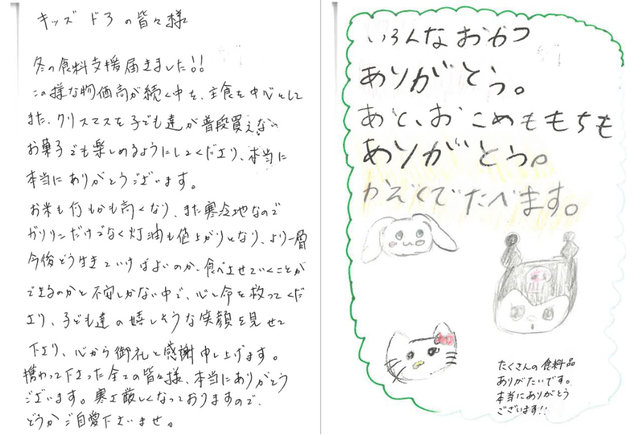 キッズドアの皆々様
冬の食料支援届きました!!
この様な物価高が続く中を、主食を中心として
また、クリスマスを子ども達が普段買えない
お菓子でも楽しめるようにしてくださり、本当に
本当にありがとうございます。
お米も何もかも高くなり、また寒冷地なので
ガソリンだけでなく灯油も値上がりとなり、より一層
今後どう生きていけばよいのか、食べさせていくことが
できるのかと不安しかない中で、心と命を救ってくだ
さり、子ども達の嬉しそうな笑顔を見せて
下さり、心から御礼と感謝申し上げます。
携わって下さった全ての皆々様、本当にありがとう
ございます。寒さ厳しくなっておりますので、
どうかご自愛下さいませ。
いろんなおかつ
ありがとう。
あと、おこめももちも
ありがとう。
かぞくでたべます。
たくさんの食料品
ありがたいです。
本当にありがとう
ございます!!